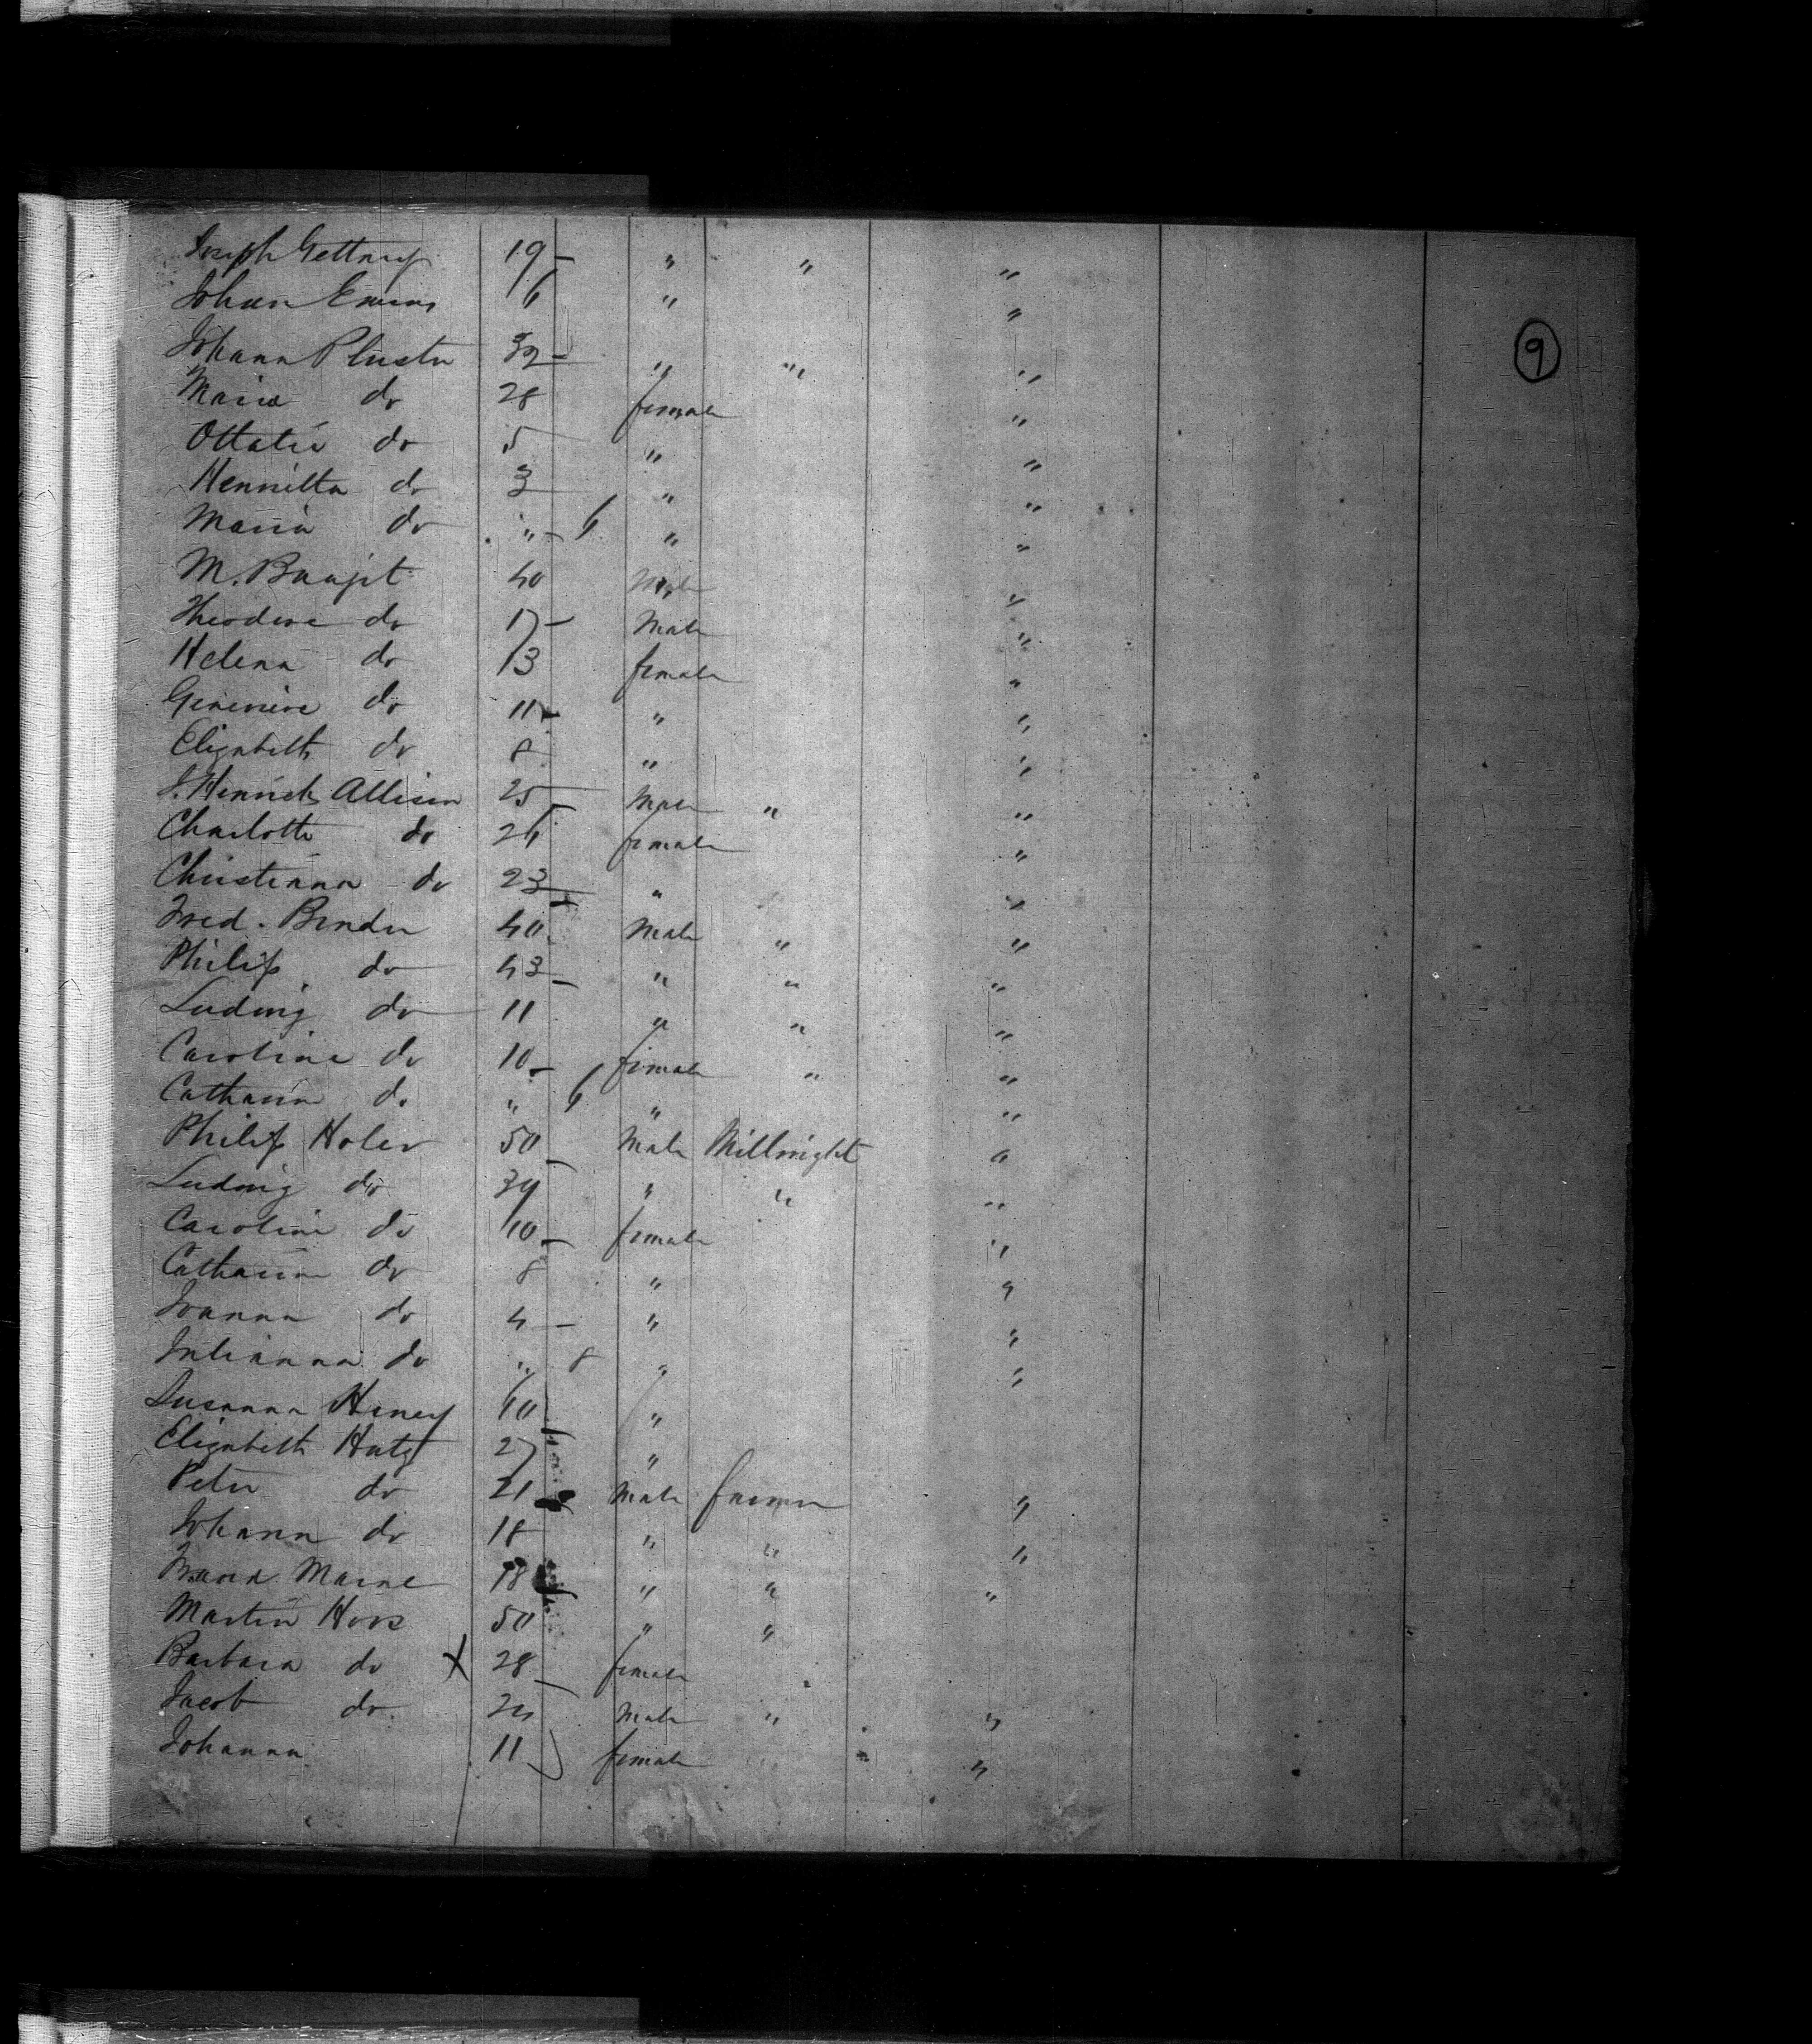 Joseph Gettrup 19 " " "
Johan Emins 6 " "
9
Johann Pluster 32 " " "
Maria do 28 female "
Ottatie do 5 " "
Hennitta do 3 " "
Maria do " 6 " "
M. 40 Male "
Theodore do 17 Male "
Helena do 13 female "
Genevieve do 11 " "
Elizabeth do 8 " "
J. Henrich Allison 25 Male " "
Charlotte do 26 female "
Christiana do 23 " "
Fred. Bender 40 Male " "
Philip do 43 " " "
Ludwig do 11 " " "
Caroline do 10 female " "
Catharine do " 6 " "
Philip Holer 50 Male Millwright "
Ludwig do 39 " " "
Caroline do 10 female "
Catharine do 8 " "
Joanna do 4 " "
Julianna do " 8 " "
Susanna Haney 60 "
Elizabeth Hutz 27 "
Peter do 21 Male farmer "
Johann do 18 " " "
Marne 18 " " "
Martin Hoos 50 " "
Barbara do X 28 female
Jacob do 24 Male " "
Johanna 11 female "